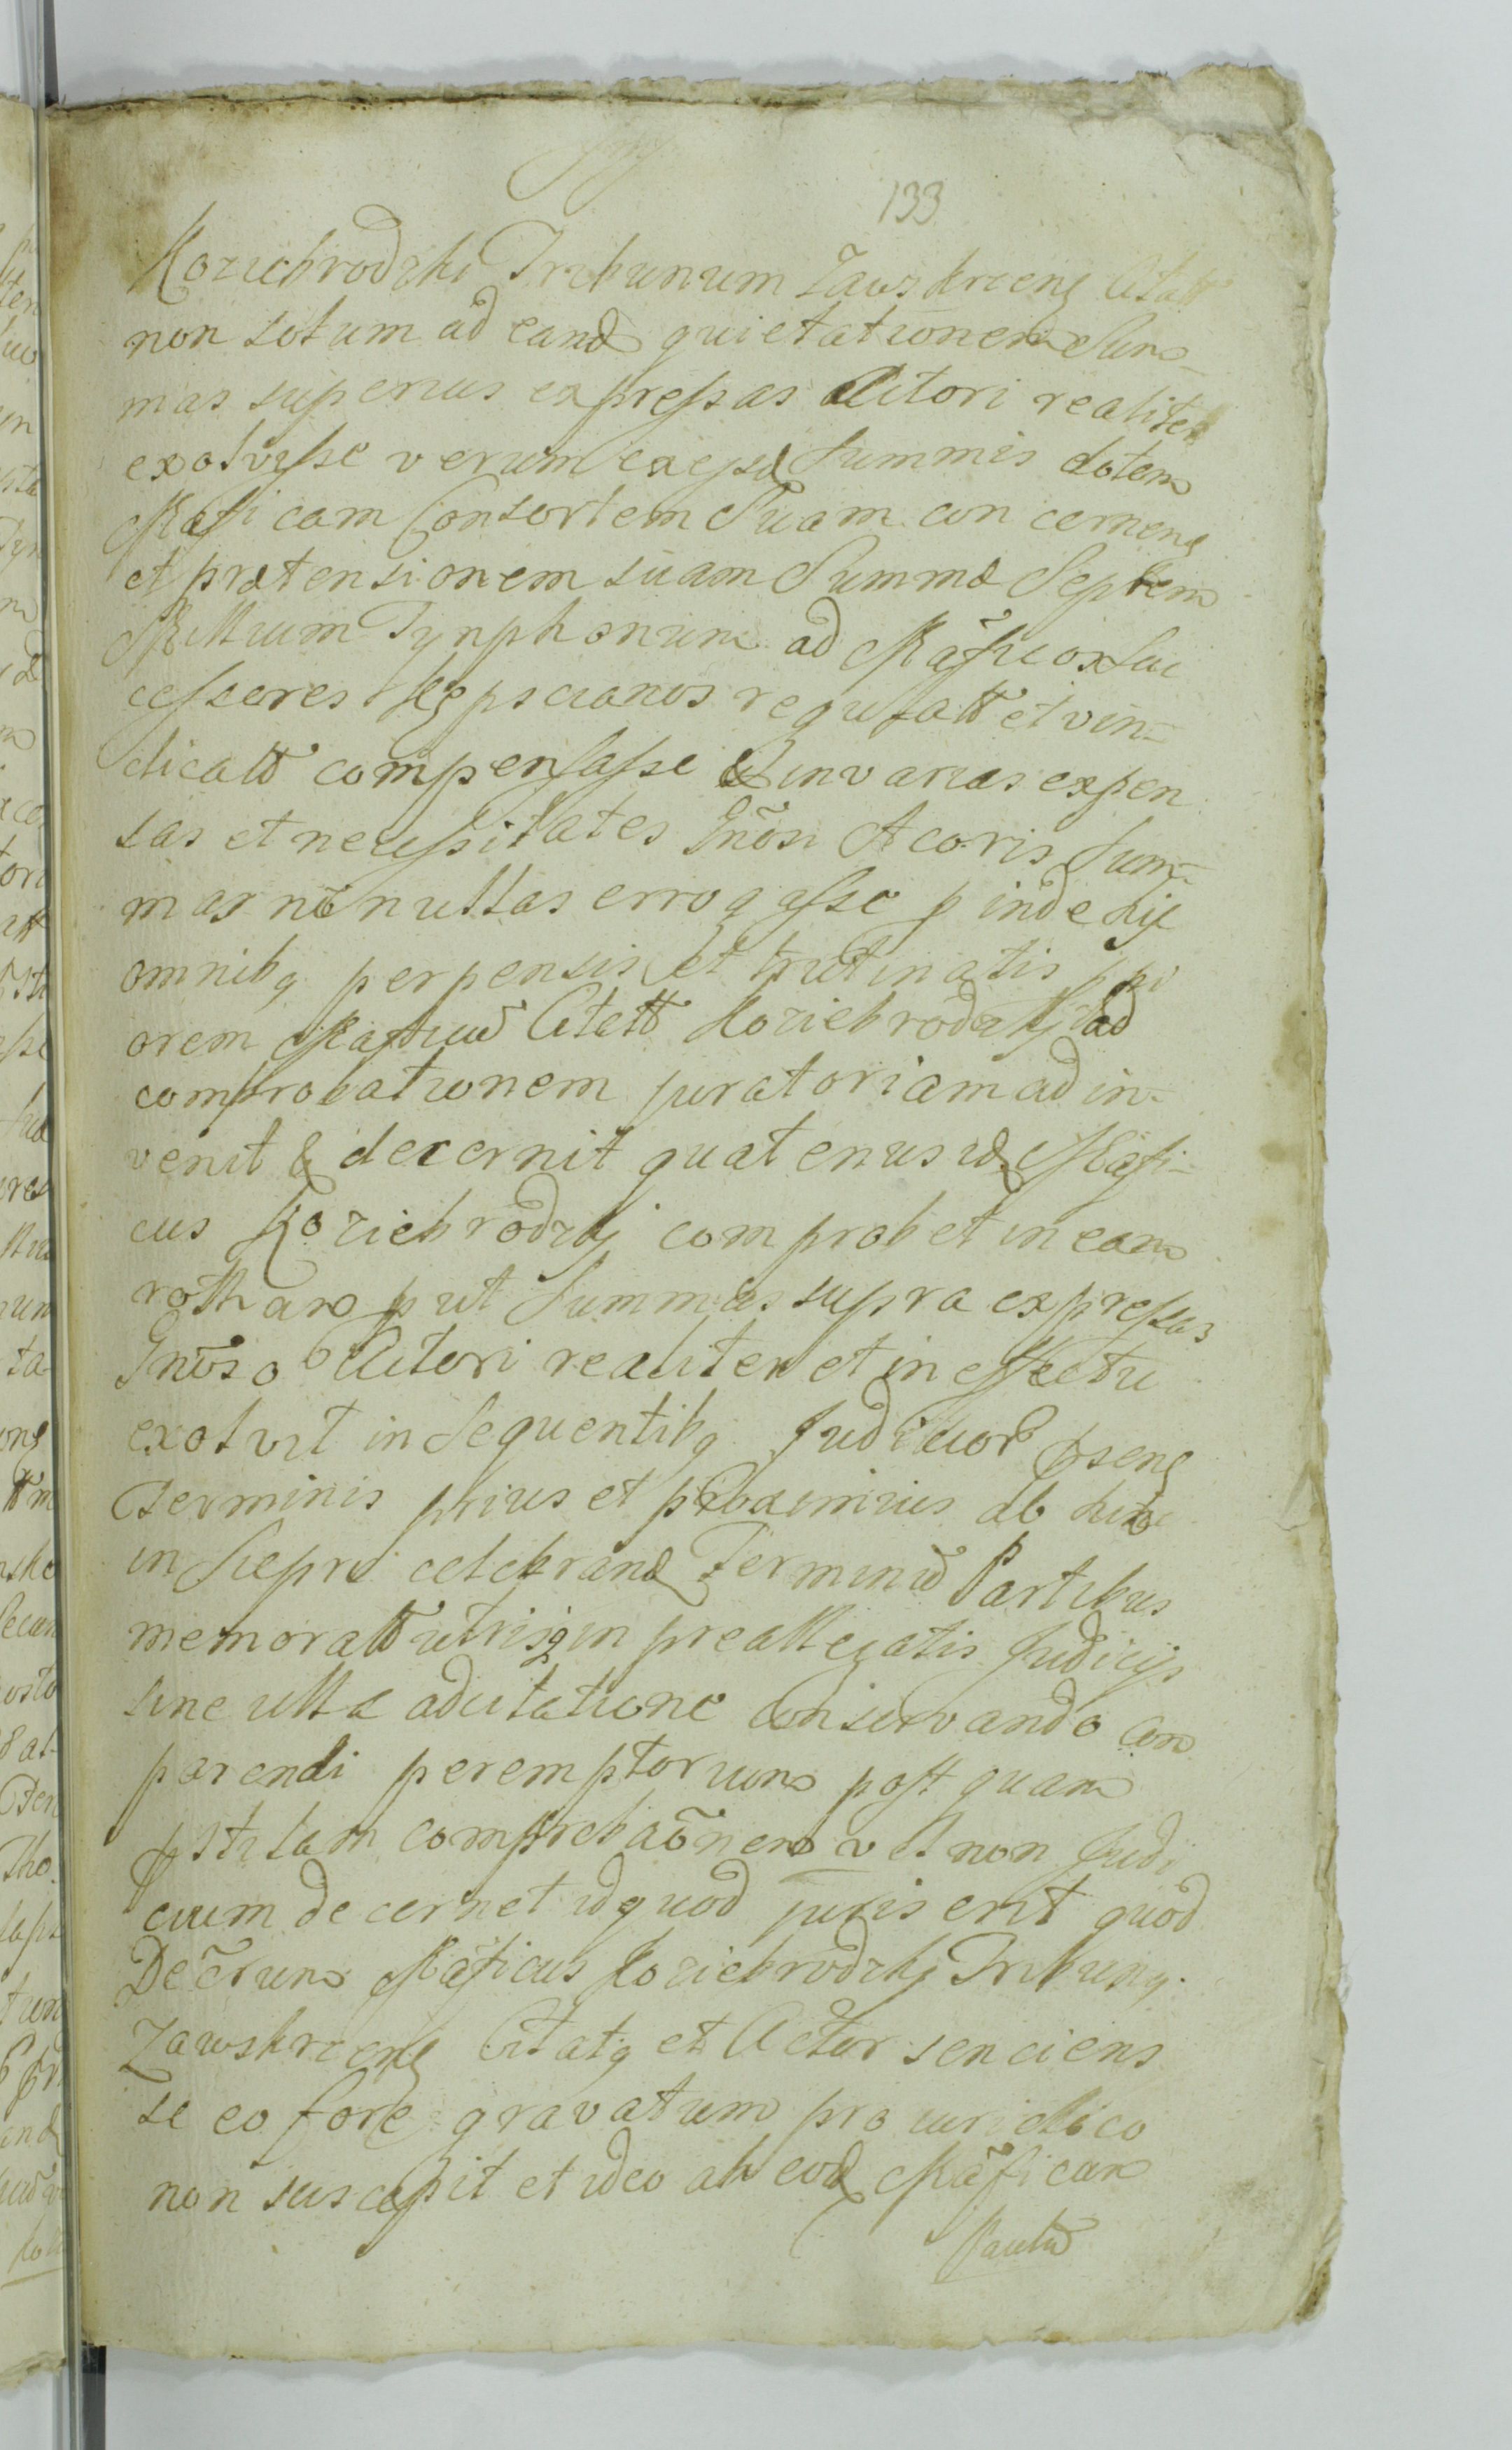 133
Koziebrodzki Tribunum Zawskrzens Citatt
non solum ad eand quietationem Sum=
mas superius expressas Actori realiter
exolvisse verum ex ejsd Summis dotem
Mãficam Consortem Suam concernens
et prætensionem suam Summæ Septem
Millium Tynphonum ad Mãficos Suc
cessores regulatt et vin=
dicatt compensasse & in varias expen
sas et necessitates Gnõsi Actoris Sum=
mas nõnullas errogasse pinde hisc
omnibq perpensis et trutinatis
orem Mãficũ Citatt Koziebrodzkj ad
comprobationem juratoriam adin=
venit & decernit quatenus id Mãfi=
cus Koziebrodzkj comprobet in eam
rotham put Summas supra expressas
Gnõso Actori realiter et in effectu
exolvit in Sequentibq Judicior psens
Terminis prius et proximius ab hinc
in Sieprc celebrand Terminũ Partibus
memoratt utrisq in preallegatis Judicijs
sine ulla adcitatione conservando com
parendi peremptorium post quam
pstitam comprobaõnem vel non Judi
cium decernet id quod juris erit quod
Decrum Mãficus Koziebrodzkj Tribunq
Zawskrzens Citatq et Actor senciens
se eo fore gravatum pro juridico
non suscepit et ideo ab eod Mãficum
Paulũ